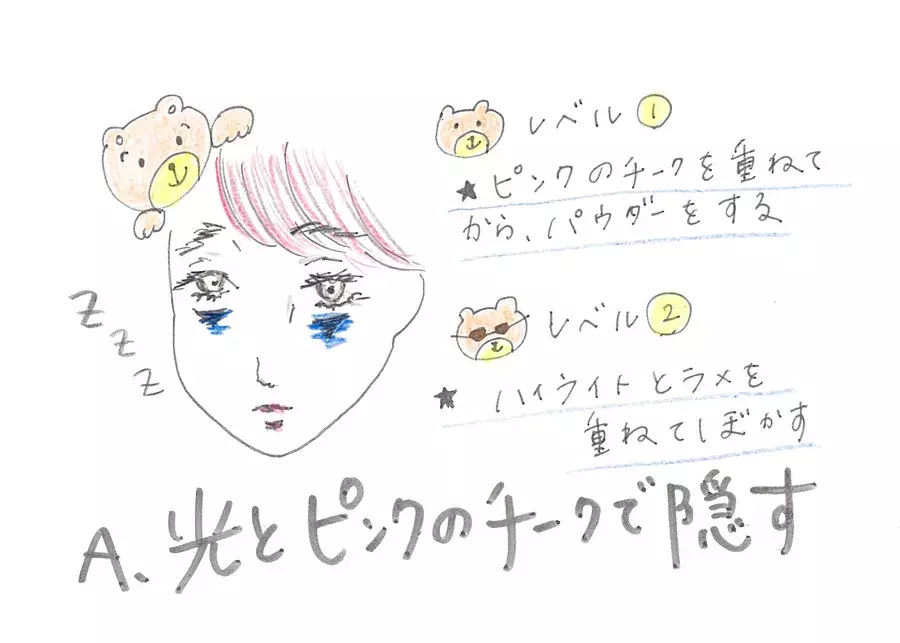 レベル 1
★ ピンクのチークを重ねて
から、パウダーをする
Z
Z
Z
レベル 2
★ ハイライトとラメを
重ねてしぼかす
A、光とピンクのチークで隠す